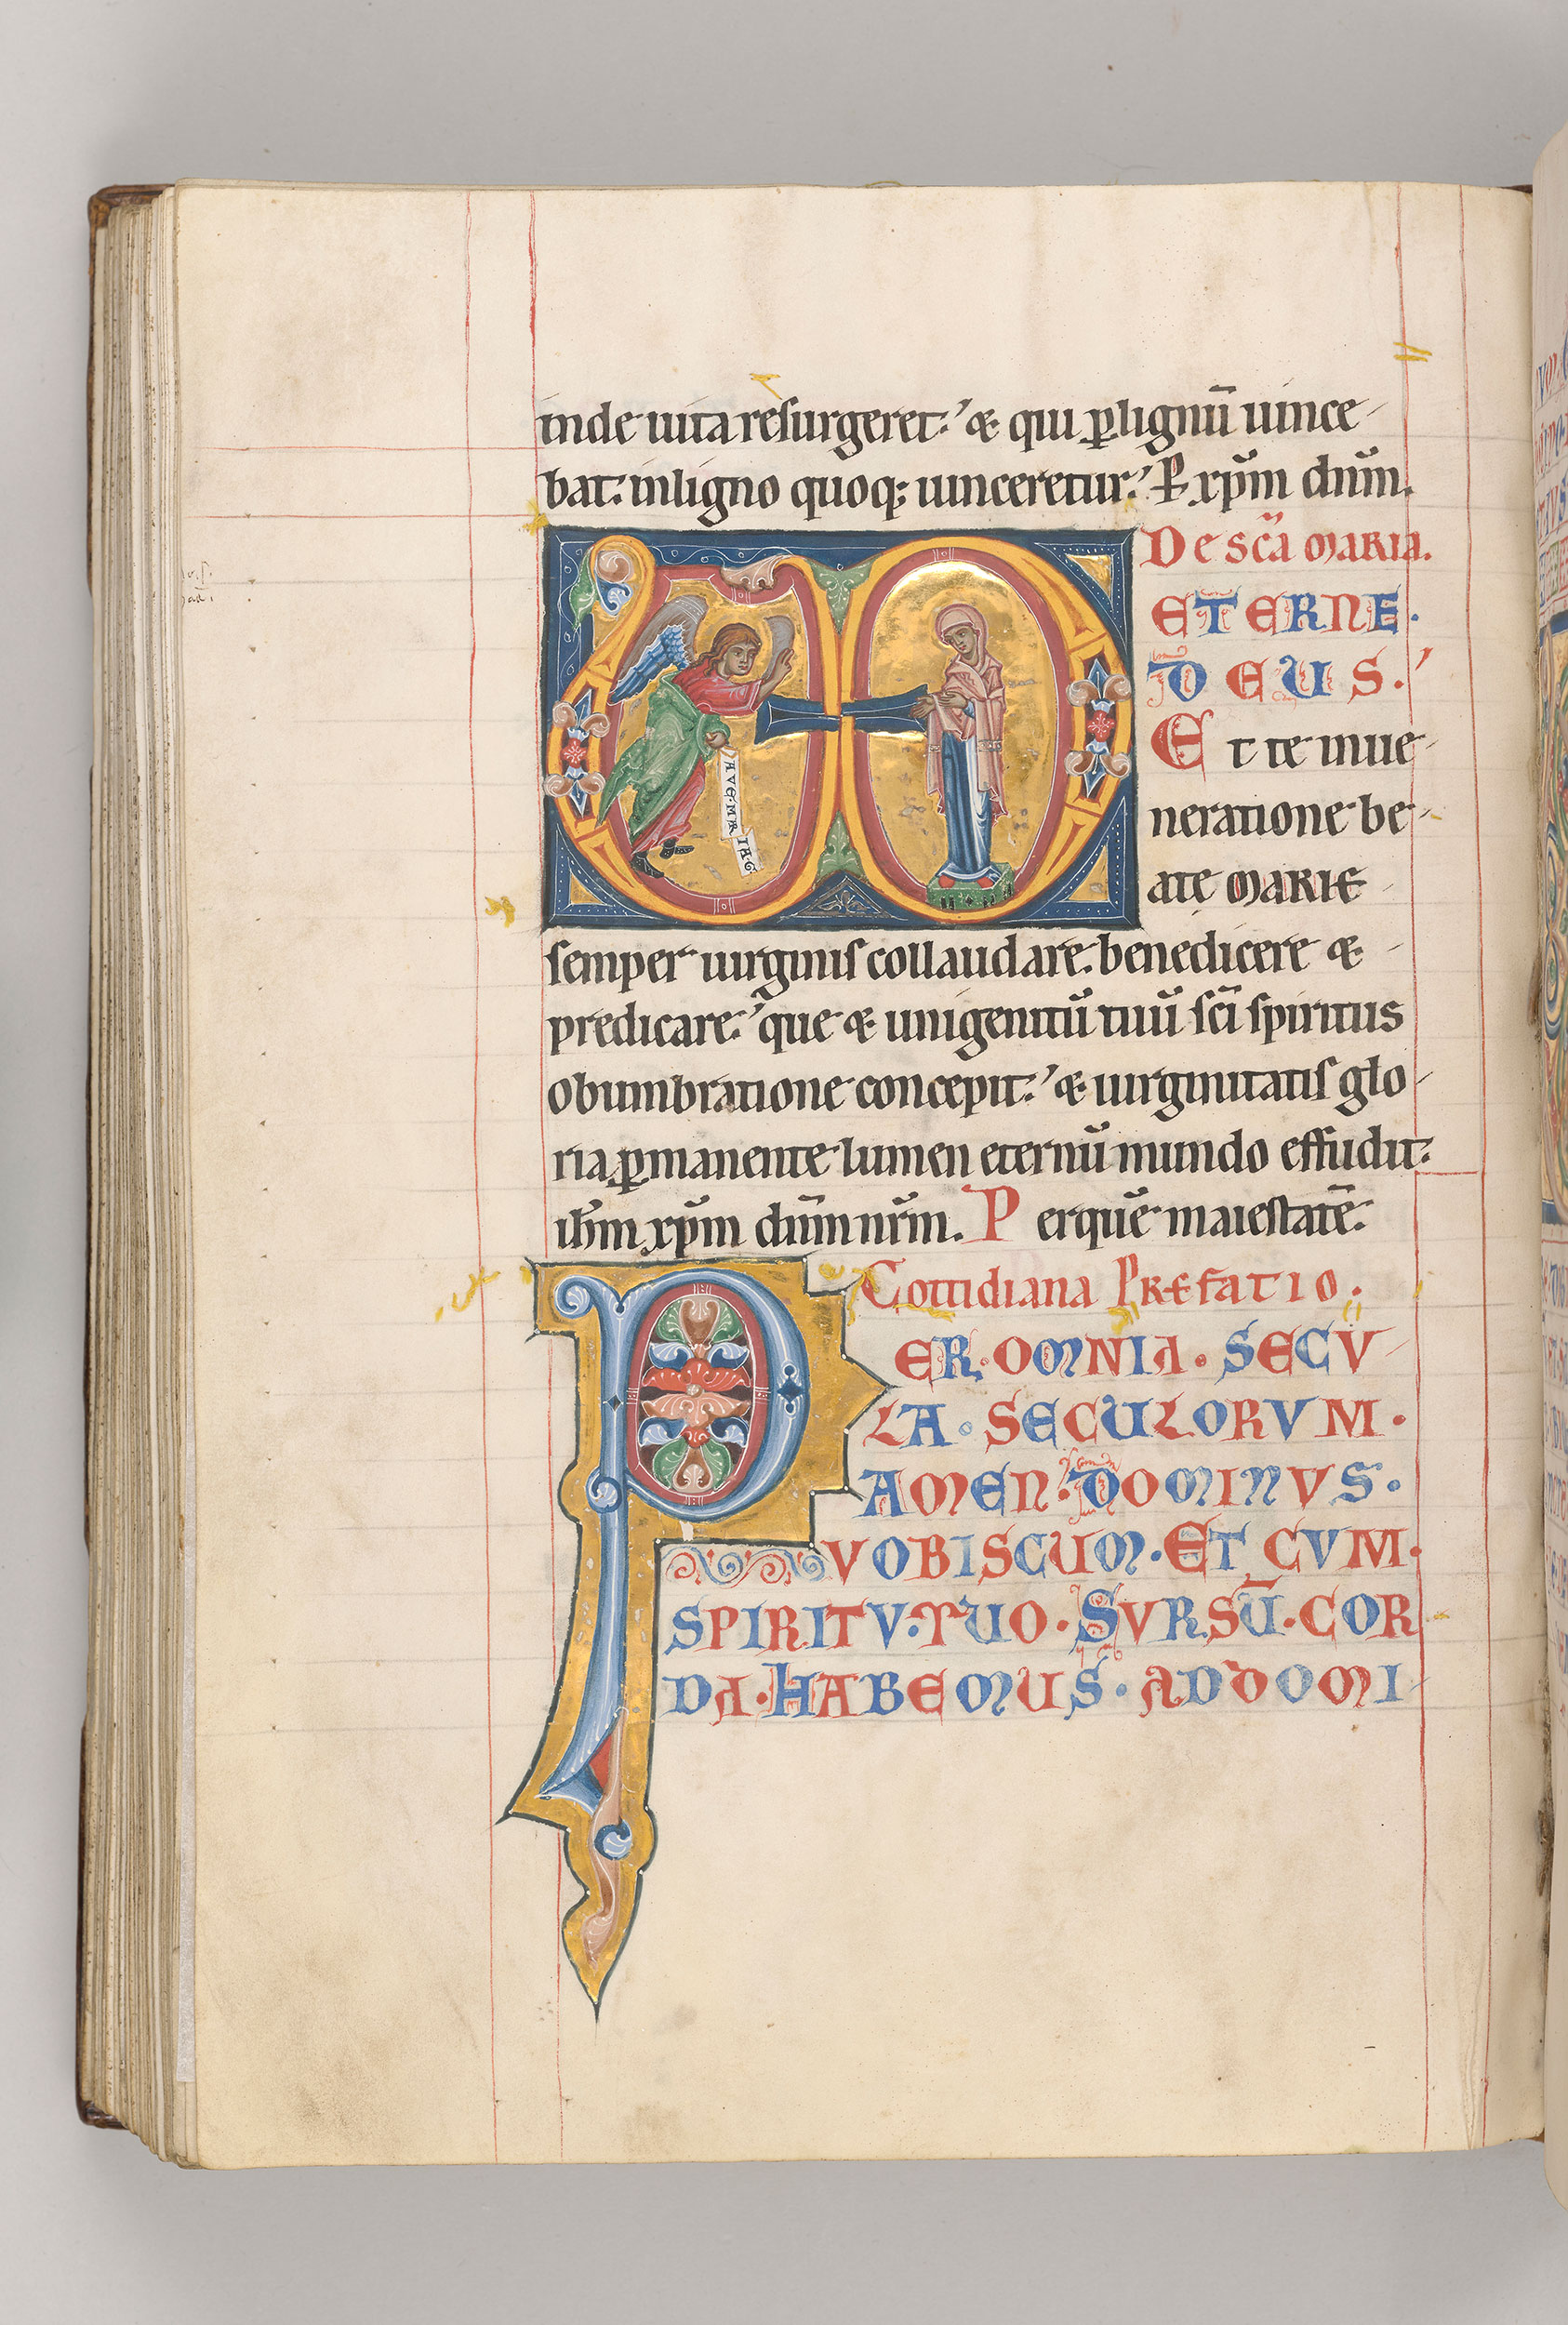 inde uita resurgeret. & qui p̱ lignū uince
bat. in ligno quoq; uinceretur. P xp̄m dn̄m.
De sc̄a MARIA.
ETERNE.
DEUS.
Et te in ue
neratione be
atę MARIE
semper uirginis collaudare. benedicere &
predicare. que & unigenitū tuū sc̄i spiritus
obumbratione concepit. & uirginitatis glo
ria p̱manente lumen eternū mundo effudit.
ih̄m xp̄m dn̄m nr̄m. Per quē maiestatē.
AVE·MA
IA·G
Cottidiana PREfatio.
PER·OMNIA·SECV
LA·SECULORVM·
AMEN·DOMINVS·
VOBISCUM·ET CVM·
SPIRITV·TUO·SVRSŪ·COR
DA·HABEMUS·AD DOMI